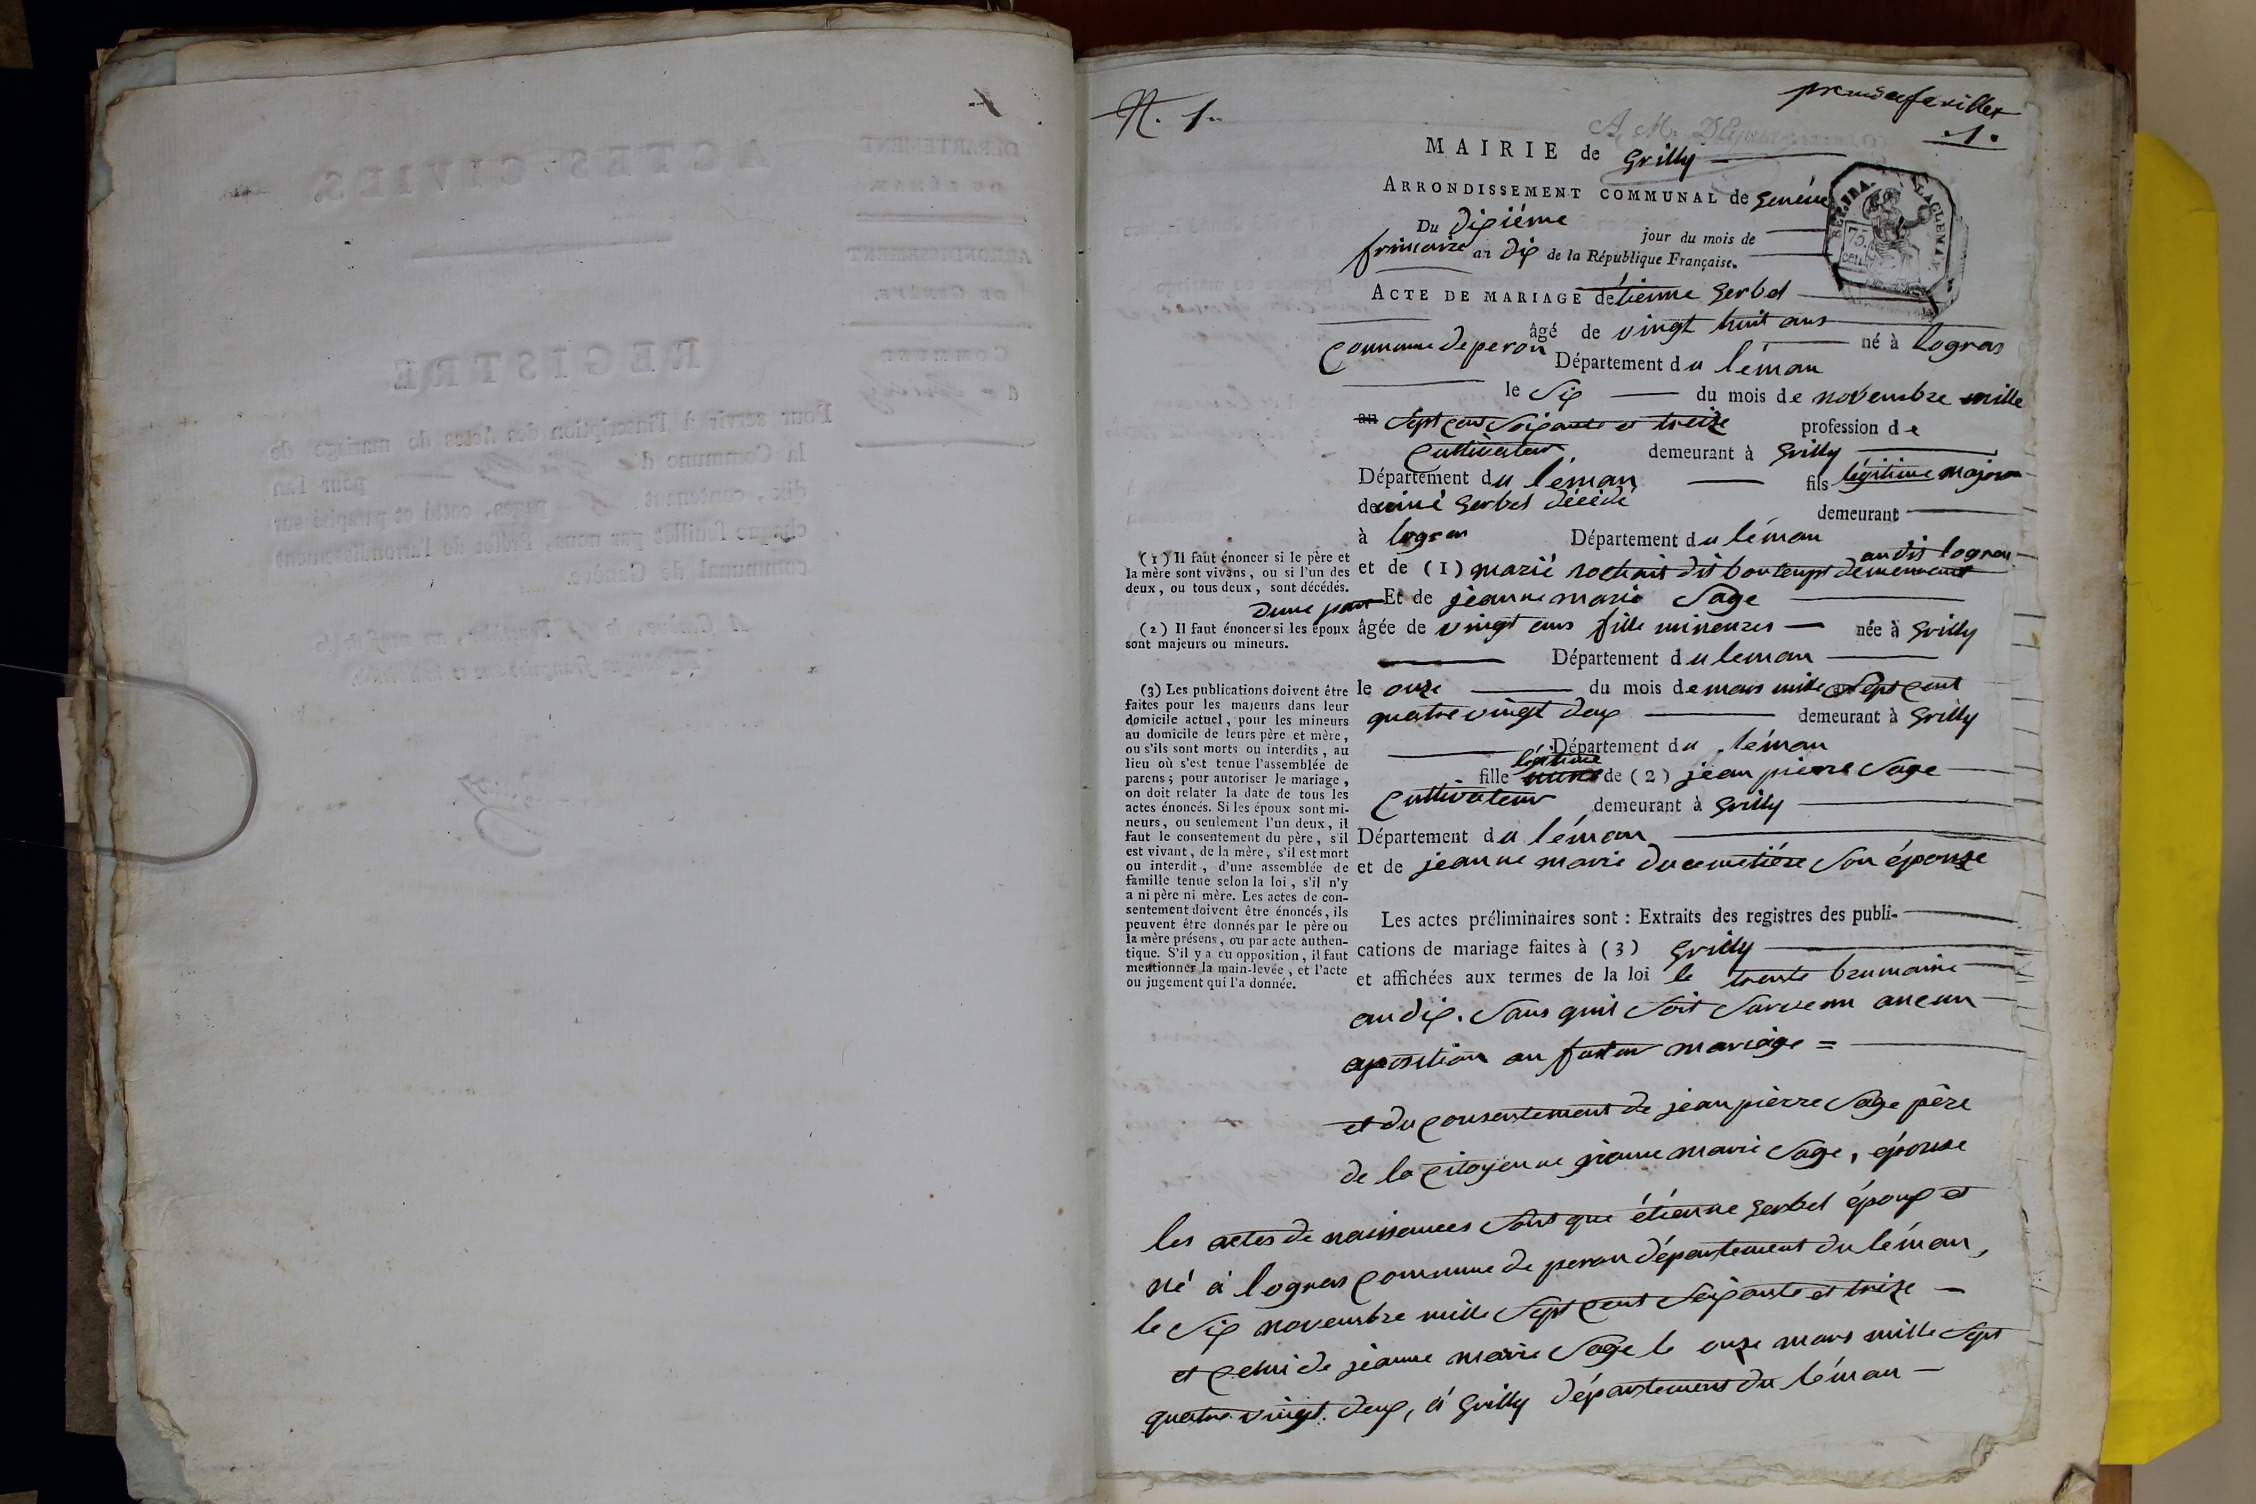 N. 1.
premier feuillet
1.
MAIRIE de Grilly
ARRONDISSEMENT COMMUNAL de Genève
REP. FRA.
75.
CEN.
Du dixiéme jour du mois de
frimaire an dix de la République Française.
ACTE DE MARIAGE d'étienne gerbel
âgé de vingt huit ans né à logras
Commune de peron Département du léman
le Six du mois de novembre mille
an Sept cent Soixante et treize profession de
Cultivateur demeurant à Grilly
Département du léman fils légitime majeur
de gerbel décédé demeurant
à logras Département du léman
et de (1) marie rochais dit bontemps demeurant
audit logras
Et de jeanne marie Sage
âgée de vingt ans fille mineure née à Grilly
Département du leman
le onze du mois de mars mille Sept cent
quatre vingt deux demeurant à Grilly
Département du léman
fille légitime de (2) jean pierre Sage
Cultivateur demeurant à Grilly
Département du léman
et de jeanne marie ducemetière son épouse
Les actes préliminaires sont : Extraits des registres des publi-
cations de mariage faites à (3) Grilly
et affichées aux termes de la loi le trente brumaire
an dix. Sans qu'il Soit Survenu aucun
aposition au futur mariage =
et du consentement de jean pièrre Sage père
de la Citoyenne jeanne marie Sage, épouse
les actes de naissances Sont que étienne gerbel époux et
né à logras Commune de peron département du léman,
le Six novembre mille Sept Cent Soixante et treize —
et Celui de jeanne marie Sage le onze mars mille Sept
quatre vingt. deux, à Grilly département du léman —
(1) Il faut énoncer si le père et
la mère sont vivans, ou si l'un des
deux, ou tous deux, sont décédés.
d'une part
(2) Il faut énoncer si les époux
sont majeurs ou mineurs.
(3) Les publications doivent être
faites pour les majeurs dans leur
domicile actuel, pour les mineurs
au domicile de leurs père et mère,
ou s'ils sont morts ou interdits, au
lieu où s'est tenue l'assemblée de
parens; pour autoriser le mariage,
on doit relater la date de tous les
actes énoncés. Si les époux sont mi-
neurs, ou seulement l'un deux, il
faut le consentement du père, s'il
est vivant, de la mère, s'il est mort
ou interdit, d'une assemblée de
famille tenue selon la loi, s'il n'y
a ni père ni mère. Les actes de con-
sentement doivent être énoncés, ils
peuvent être donnés par le père ou
la mère présens, ou par acte authen-
tique. S'il y a eu opposition, il faut
mentionner la main-levée, et l'acte
ou jugement qui l'a donnée.